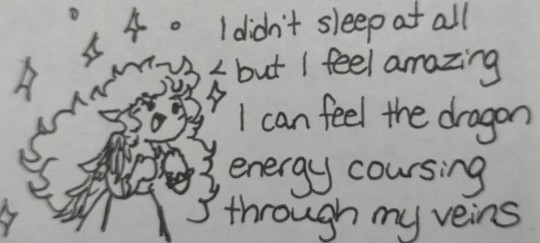 I didn't sleep at all
but I feel amazing
I can feel the dragon
energy coursing
through my veins